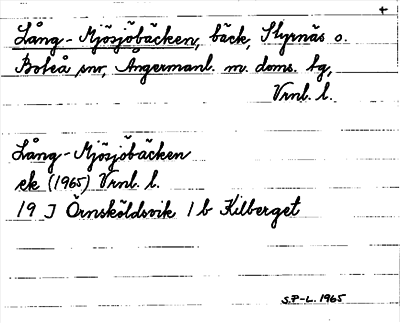 +
Lång-Mjösjöbäcken, bäck, Styrnäs o.
Boteå snr, Ångermanl. m. doms. hg,
Vrnl. l.
Lång-Mjösjöbäcken
ek (1965) Vrnl. l.
19 J Örnsköldsvik 1 b Kilberget
S.P-L. 1965